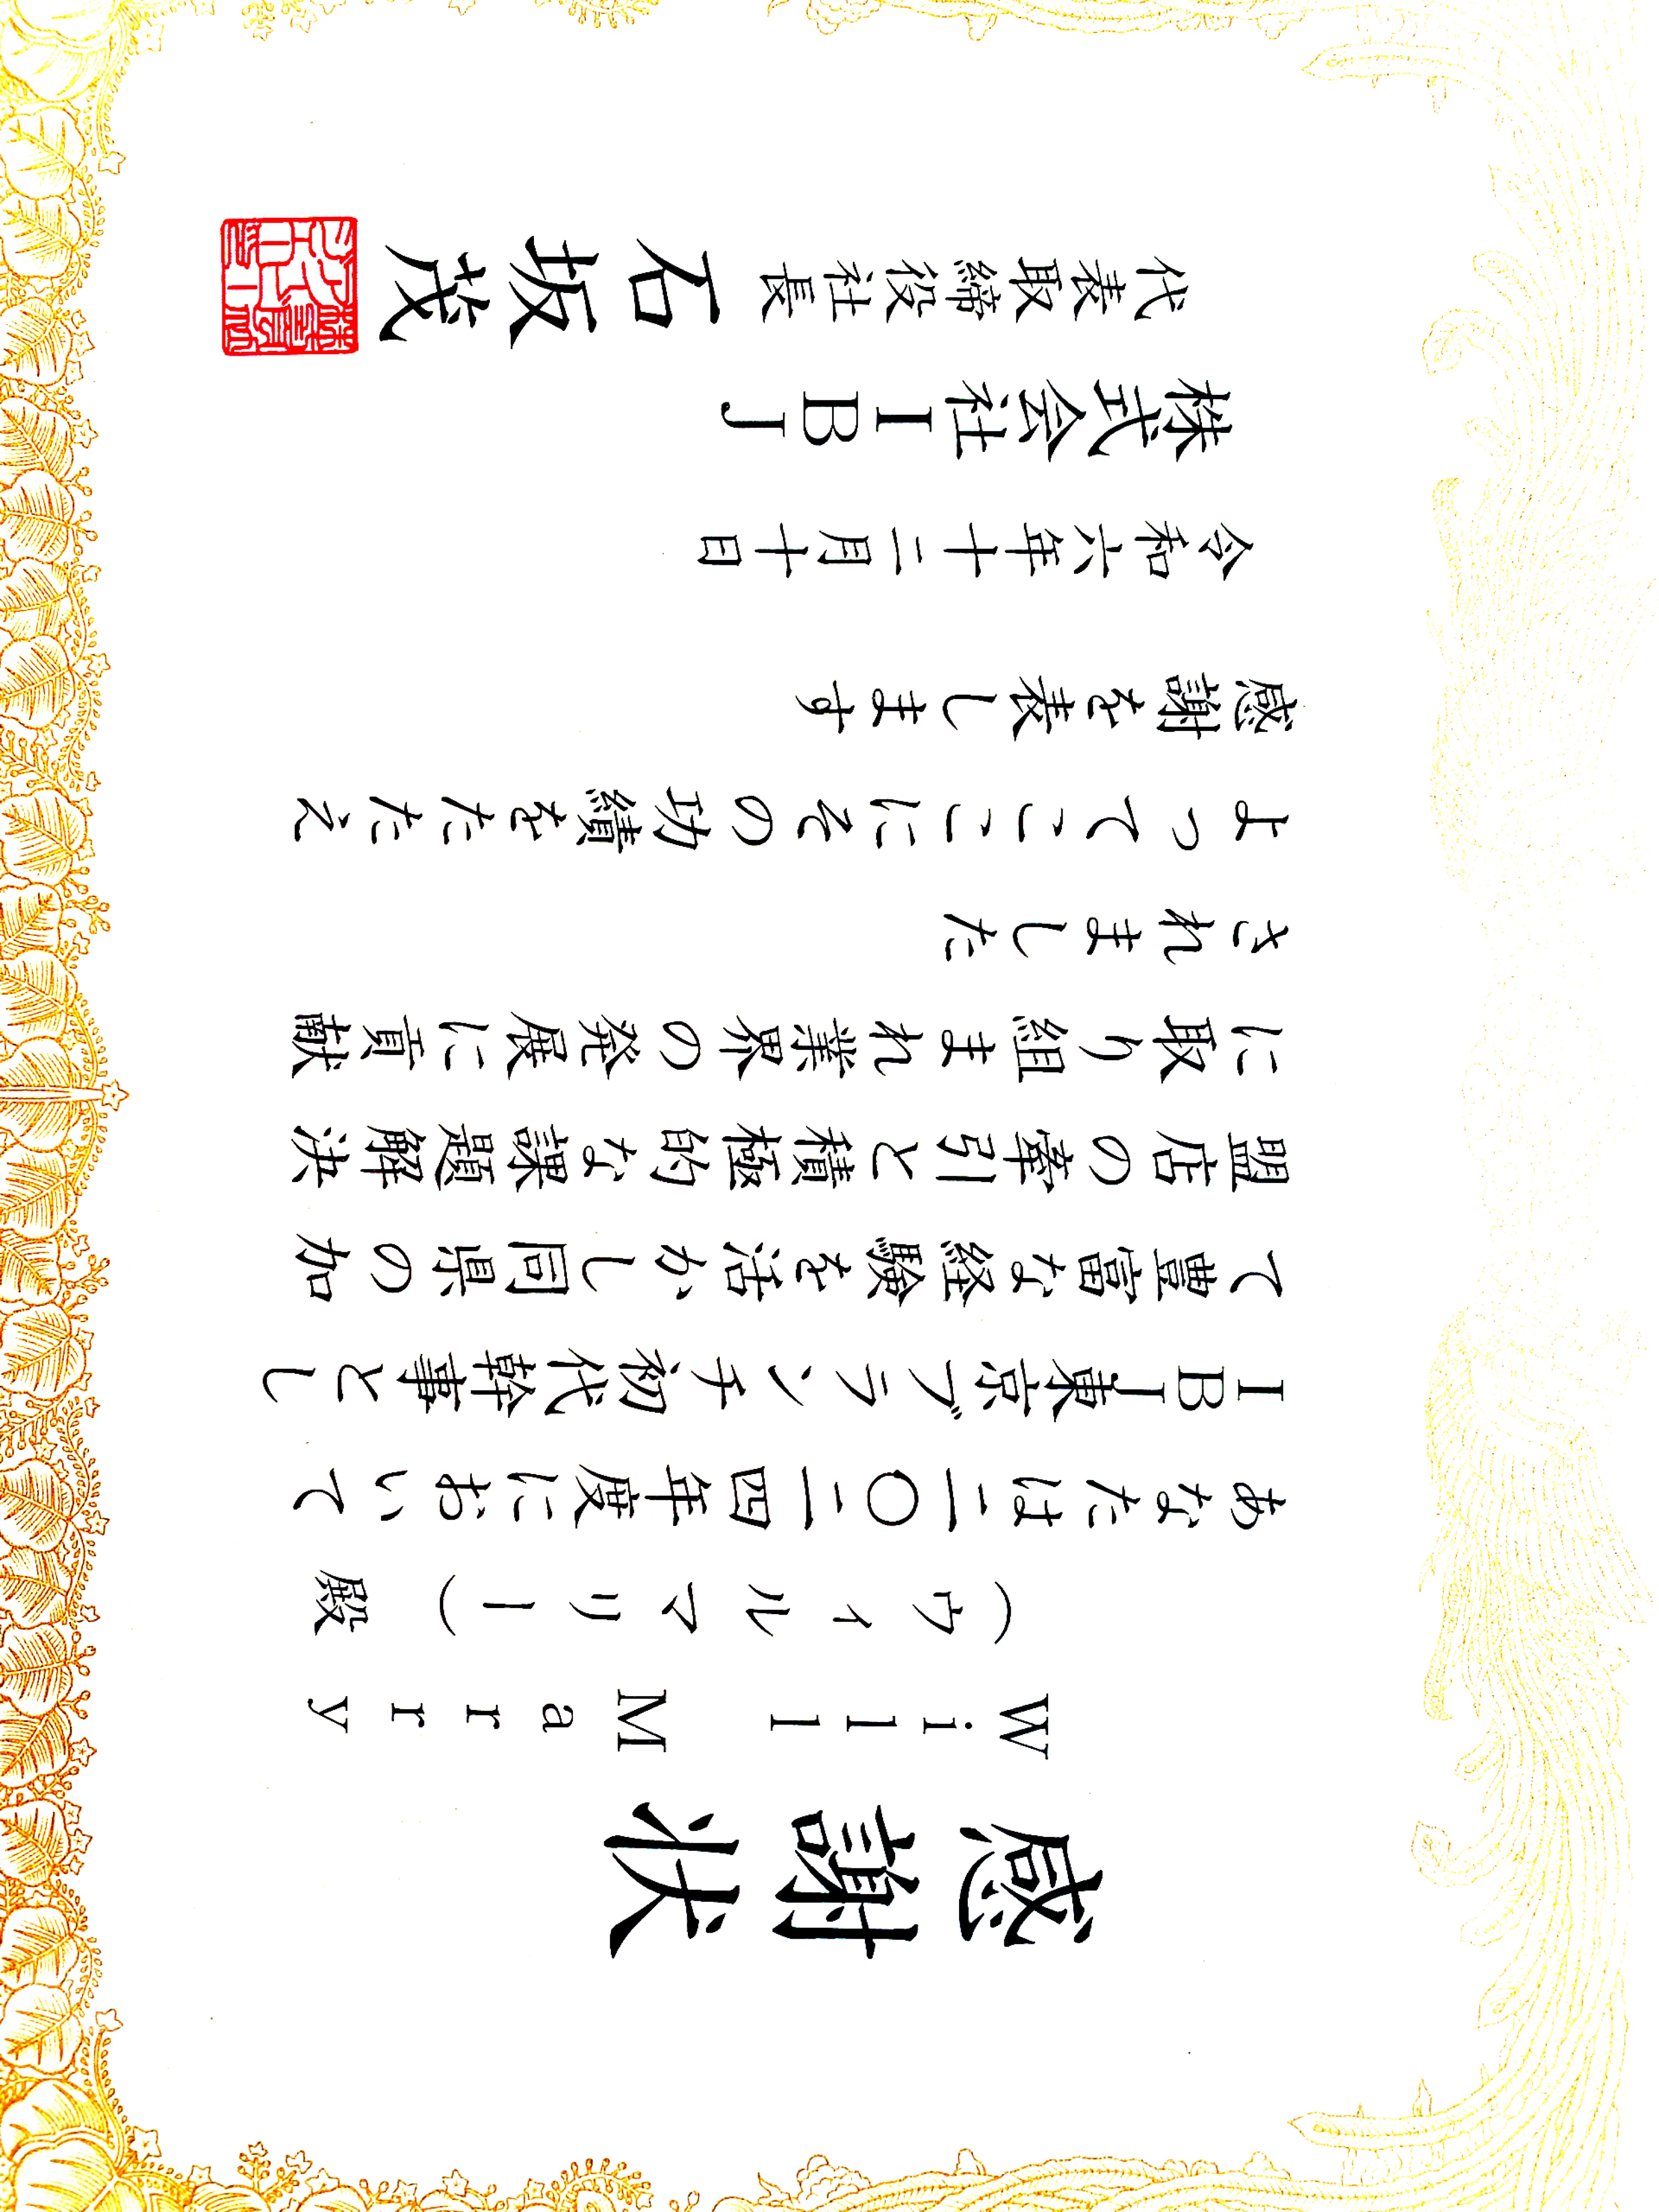 感謝状
Will Marry
（ウィルマリー）殿
あなたは二〇二四年度において
IBJ東京ブランチ初代幹事とし
て豊富な経験を活かし同県の加
盟店の牽引と積極的な課題解決
に取り組まれ業界の発展に貢献
されました
よってここにその功績をたたえ
感謝を表します
令和六年十二月十日
株式会社IBJ
代表取締役社長 石坂茂